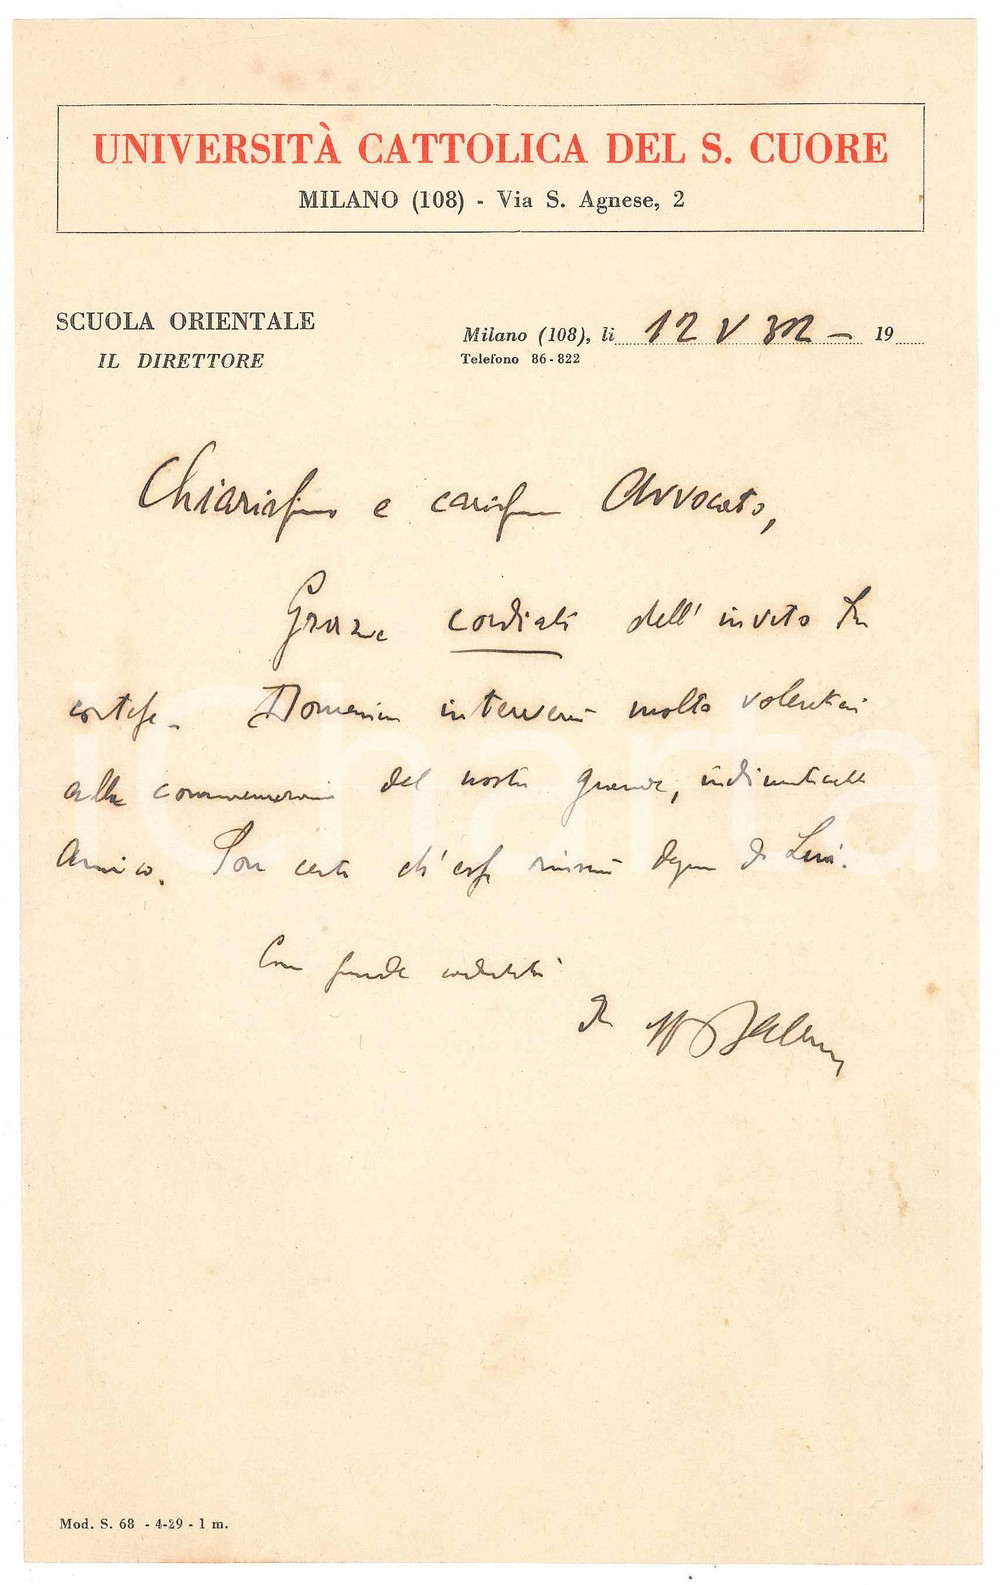 UNIVERSITÀ CATTOLICA DEL S. CUORE
MILANO (108) - Via S. Agnese, 2
SCUOLA ORIENTALE
IL DIRETTORE
Milano (108), li 12 V 32 - 19
Telefono 86-822
Chiarissimo e carissimo Avvocato,
Grazie cordiali dell'invito Suo
cortese. Domenica interverrò molto volentieri
alla commemorazione del nostro grande, indimenticabile
Amico. Son certo ch'essa riuscirà degna di Lui.
Con grande cordialità
Mod. S. 68 - 4-29 - 1 m.
iCharta